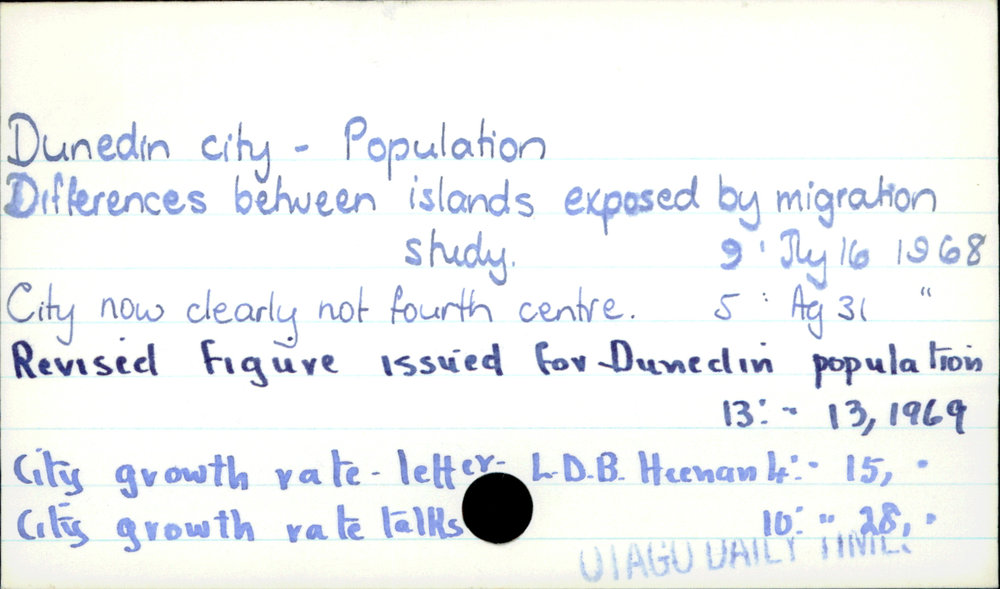 Dunedin city - Population
Differences between islands exposed by migration
study. 9 : Jly 16 1968
City now clearly not fourth centre. 5 : Ag 31 "
Revised Figure issued for Dunedin population
13: " 13, 1969
City growth rate - letter - L.D.B. Heenan 4: " 15, "
City growth rate talks 10: " 28, "
OTAGO DAILY TIMES.